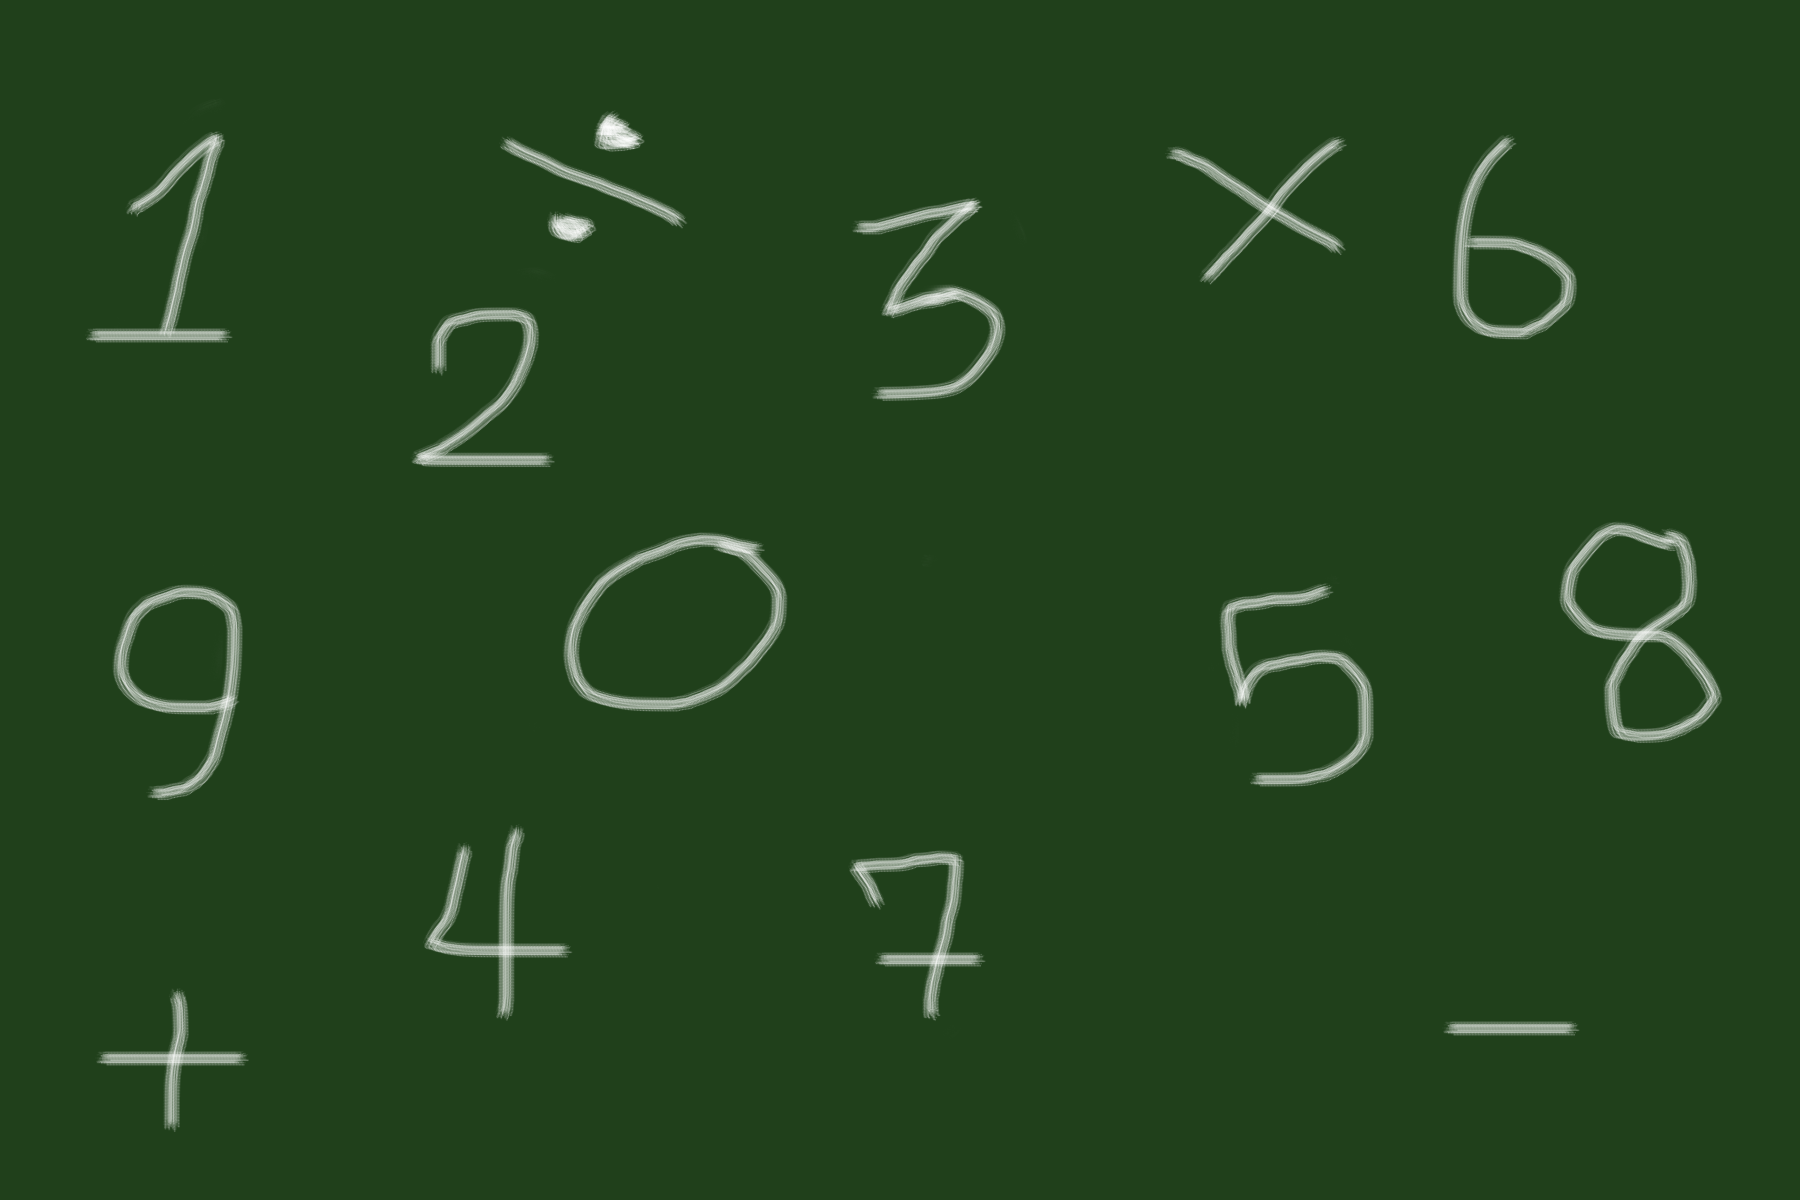 1 ÷ 3 × 6
2
9 0 5 8
4 7
+ −